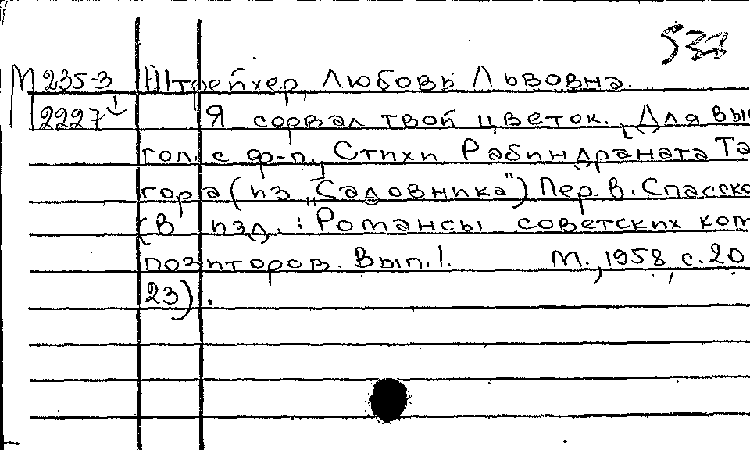 532
М 235-3 Штрейхер, Любовь Львовна.
2227 Я сорвал твой цветок. Для выс
гол. с ф-п. Стихи Рабиндраната Та
гора (из „Садовника") Пер. В. Спасско
(В изд.: Романсы советских ком
позиторов. Вып. 1. М., 1958, с. 20
23).